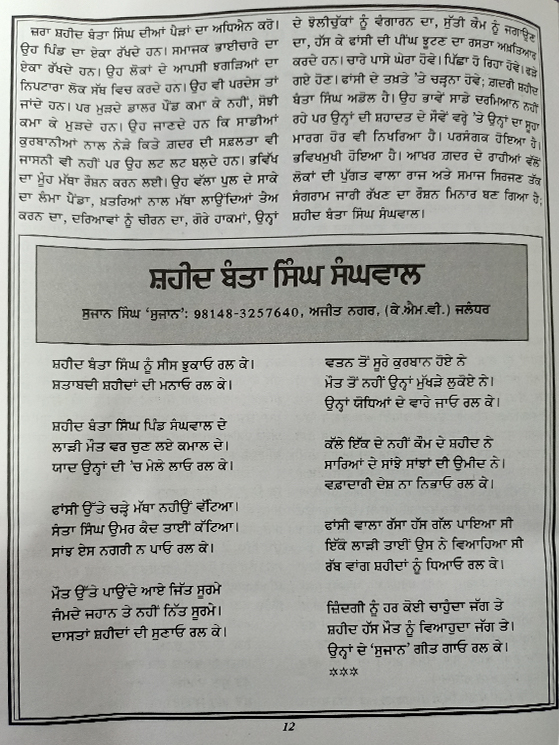 ਜ਼ਰਾ ਸ਼ਹੀਦ ਬੰਤਾ ਸਿੰਘ ਦੀਆਂ ਪੈੜਾਂ ਦਾ ਅਧਿਐਨ ਕਰੋ।
ਉਹ ਪਿੰਡ ਦਾ ਏਕਾ ਰੱਖਦੇ ਹਨ। ਸਮਾਜਕ ਭਾਈਚਾਰੇ ਦਾ
ਏਕਾ ਰੱਖਦੇ ਹਨ। ਉਹ ਲੋਕਾਂ ਦੇ ਆਪਸੀ ਝਗੜਿਆਂ ਦਾ
ਨਿਪਟਾਰਾ ਲੋਕ ਸੱਥ ਵਿਚ ਕਰਦੇ ਹਨ। ਉਹ ਵੀ ਪਰਦੇਸ ਤਾਂ
ਜਾਂਦੇ ਹਨ। ਪਰ ਮੁੜਦੇ ਡਾਲਰ ਪੌਂਡ ਕਮਾ ਕੇ ਨਹੀਂ, ਸੋਝੀ
ਕਮਾ ਕੇ ਮੁੜਦੇ ਹਨ। ਉਹ ਜਾਣਦੇ ਹਨ ਕਿ ਸਾਡੀਆਂ
ਕੁਰਬਾਨੀਆਂ ਨਾਲ ਨੇੜੇ ਕਿਤੇ ਗ਼ਦਰ ਦੀ ਸਫ਼ਲਤਾ ਵੀ
ਜਾਸਨੀ ਵੀ ਨਹੀਂ ਪਰ ਉਹ ਲਟ ਲਟ ਬਲਦੇ ਹਨ। ਭਵਿੱਖ
ਦਾ ਮੂੰਹ ਮੱਥਾ ਰੌਸ਼ਨ ਕਰਨ ਲਈ। ਉਹ ਵੱਲਾ ਪੁਲ ਦੇ ਸਾਕੇ
ਦਾ ਲੰਮਾ ਪੈਂਡਾ, ਖ਼ਤਰਿਆਂ ਨਾਲ ਮੱਥਾ ਲਾਉਂਦਿਆਂ ਤੈਅ
ਕਰਨ ਦਾ, ਦਰਿਆਵਾਂ ਨੂੰ ਚੀਰਨ ਦਾ, ਗੋਰੇ ਹਾਕਮਾਂ, ਉਨ੍ਹਾਂ
ਦੇ ਝੋਲੀਚੁੱਕਾਂ ਨੂੰ ਵੰਗਾਰਨ ਦਾ, ਸੁੱਤੀ ਕੌਮ ਨੂੰ ਜਗਾਉਣ
ਦਾ, ਹੱਸ ਕੇ ਫਾਂਸੀ ਦੀ ਪੀਂਘ ਝੂਟਣ ਦਾ ਰਸਤਾ ਅਖ਼ਤਿਆਰ
ਕਰਦੇ ਹਨ। ਚਾਰੇ ਪਾਸੇ ਘੇਰਾ ਹੋਵੇ। ਪਿੱਛਾ ਹੋ ਰਿਹਾ ਹੋਵੇ। ਫੜੇ
ਗਏ ਹੋਣ। ਫਾਂਸੀ ਦੇ ਤਖ਼ਤੇ 'ਤੇ ਚੜ੍ਹਨਾ ਹੋਵੇ; ਗ਼ਦਰੀ ਸ਼ਹੀਦ
ਬੰਤਾ ਸਿੰਘ ਅਡੋਲ ਹੈ। ਉਹ ਭਾਵੇਂ ਸਾਡੇ ਦਰਮਿਆਨ ਨਹੀਂ
ਰਹੇ ਪਰ ਉਨ੍ਹਾਂ ਦੀ ਸ਼ਹਾਦਤ ਦੇ ਸੌਵੇਂ ਵਰ੍ਹੇ 'ਤੇ ਉਨ੍ਹਾਂ ਦਾ ਸੂਹਾ
ਮਾਰਗ ਹੋਰ ਵੀ ਨਿਖਰਿਆ ਹੈ। ਪਰਸੰਗਕ ਹੋਇਆ ਹੈ।
ਭਵਿਖਮੁਖੀ ਹੋਇਆ ਹੈ। ਆਖਰ ਗ਼ਦਰ ਦੇ ਰਾਹੀਆਂ ਵੱਲੋਂ
ਲੋਕਾਂ ਦੀ ਪੁੱਗਤ ਵਾਲਾ ਰਾਜ ਅਤੇ ਸਮਾਜ ਸਿਰਜਣ ਤੱਕ
ਸੰਗਰਾਮ ਜਾਰੀ ਰੱਖਣ ਦਾ ਰੌਸ਼ਨ ਮਿਨਾਰ ਬਣ ਗਿਆ ਹੈ;
ਸ਼ਹੀਦ ਬੰਤਾ ਸਿੰਘ ਸੰਘਵਾਲ।
ਸ਼ਹੀਦ ਬੰਤਾ ਸਿੰਘ ਸੰਘਵਾਲ
ਸੁਜਾਨ ਸਿੰਘ 'ਸੁਜਾਨ': 98148-3257640, ਅਜੀਤ ਨਗਰ, (ਕੇ.ਐਮ.ਵੀ.) ਜਲੰਧਰ
ਸ਼ਹੀਦ ਬੰਤਾ ਸਿੰਘ ਨੂੰ ਸੀਸ ਝੁਕਾਓ ਰਲ ਕੇ।
ਸ਼ਤਾਬਦੀ ਸ਼ਹੀਦਾਂ ਦੀ ਮਨਾਓ ਰਲ ਕੇ।
ਸ਼ਹੀਦ ਬੰਤਾ ਸਿੰਘ ਪਿੰਡ ਸੰਘਵਾਲ ਦੇ
ਲਾੜੀ ਮੌਤ ਵਰ ਚੁਣ ਲਏ ਕਮਾਲ ਦੇ।
ਯਾਦ ਉਨ੍ਹਾਂ ਦੀ 'ਚ ਮੇਲੇ ਲਾਓ ਰਲ ਕੇ।
ਫਾਂਸੀ ਉੱਤੇ ਚੜ੍ਹੇ ਮੱਥਾ ਨਹੀਓਂ ਵੱਟਿਆ।
ਸੰਤਾ ਸਿੰਘ ਉਮਰ ਕੈਦ ਤਾਈਂ ਕੱਟਿਆ।
ਸਾਂਝ ਏਸ ਨਗਰੀ ਨ ਪਾਓ ਰਲ ਕੇ।
ਮੌਤ ਉੱਤੇ ਪਾਉਂਦੇ ਆਏ ਜਿੱਤ ਸੂਰਮੇ
ਜੰਮਦੇ ਜਹਾਨ ਤੇ ਨਹੀਂ ਨਿੱਤ ਸੂਰਮੇ।
ਦਾਸਤਾਂ ਸ਼ਹੀਦਾਂ ਦੀ ਸੁਣਾਓ ਰਲ ਕੇ।
ਵਤਨ ਤੋਂ ਸੂਰੇ ਕੁਰਬਾਨ ਹੋਏ ਨੇ
ਮੌਤ ਤੋਂ ਨਹੀਂ ਉਨ੍ਹਾਂ ਮੁੱਖੜੇ ਲੁਕੋਏ ਨੇ।
ਉਨ੍ਹਾਂ ਯੋਧਿਆਂ ਦੇ ਵਾਰੇ ਜਾਓ ਰਲ ਕੇ।
ਕੱਲੇ ਇੱਕ ਦੇ ਨਹੀਂ ਕੌਮ ਦੇ ਸ਼ਹੀਦ ਨੇ
ਸਾਰਿਆਂ ਦੇ ਸਾਂਝੇ ਸਾਂਝਾਂ ਦੀ ਉਮੀਦ ਨੇ।
ਵਫ਼ਾਦਾਰੀ ਦੇਸ਼ ਨਾ ਨਿਭਾਓ ਰਲ ਕੇ।
ਫਾਂਸੀ ਵਾਲਾ ਰੱਸਾ ਹੱਸ ਗੱਲ ਪਾਇਆ ਸੀ
ਇੱਕੋ ਲਾੜੀ ਤਾਈਂ ਉਸ ਨੇ ਵਿਆਹਿਆ ਸੀ
ਰੱਬ ਵਾਂਗ ਸ਼ਹੀਦਾਂ ਨੂੰ ਧਿਆਓ ਰਲ ਕੇ।
ਜ਼ਿੰਦਗੀ ਨੂੰ ਹਰ ਕੋਈ ਚਾਹੁੰਦਾ ਜੱਗ ਤੇ
ਸ਼ਹੀਦ ਹੱਸ ਮੌਤ ਨੂੰ ਵਿਆਹੁਦਾ ਜੱਗ ਤੇ।
ਉਨ੍ਹਾਂ ਦੇ 'ਸੁਜਾਨ' ਗੀਤ ਗਾਓ ਰਲ ਕੇ।
✡✡✡
12